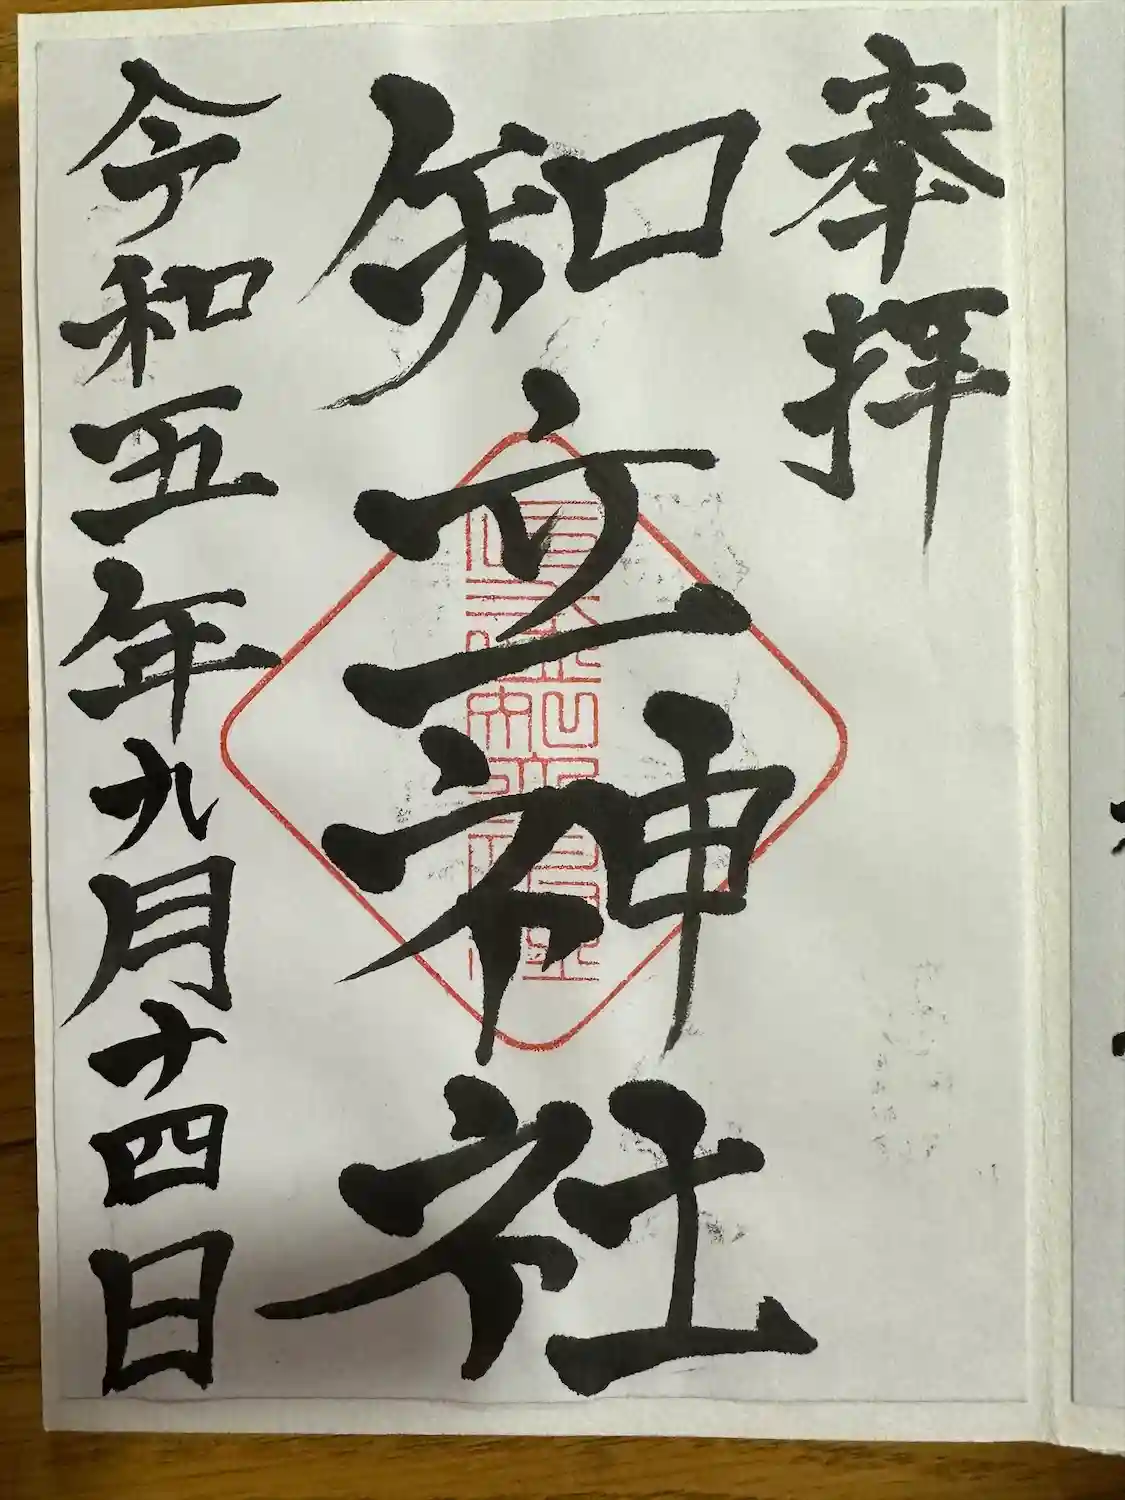 奉拝
知立神社
令和五年九月十四日